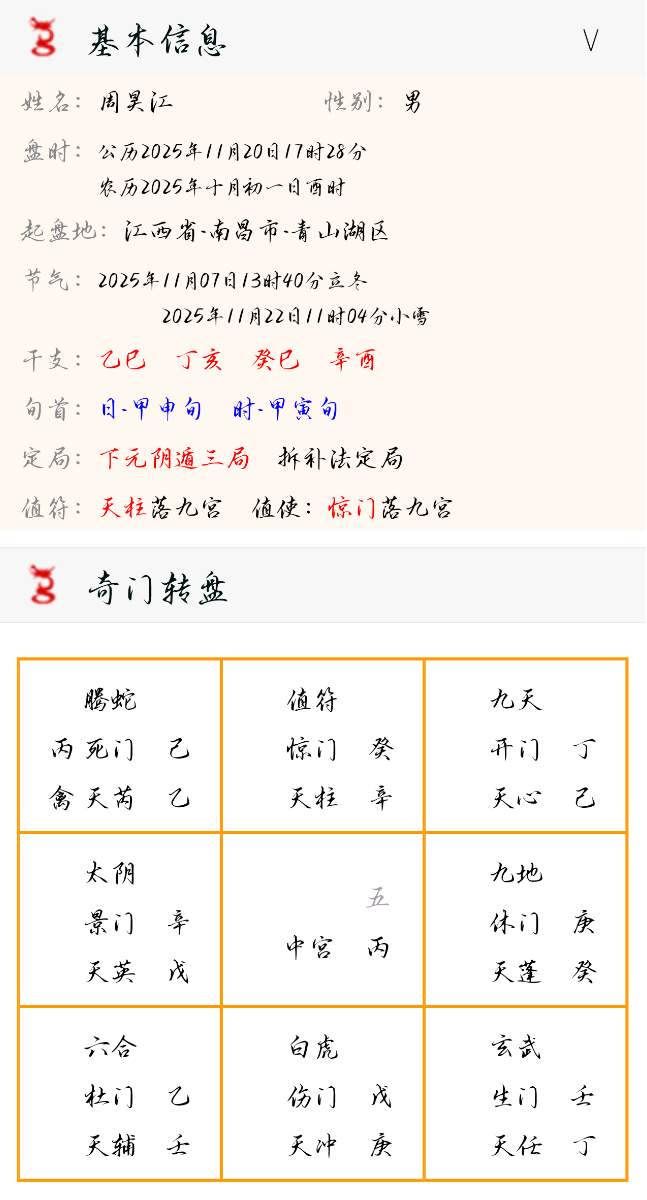 基本信息
姓名：周昊江 性别：男
盘时：公历2025年11月20日17时28分
农历2025年十月初一日酉时
起盘地：江西省-南昌市-青山湖区
节气：2025年11月07日13时40分立冬
2025年11月22日11时04分小雪
干支：乙巳 丁亥 癸巳 辛酉
旬首：日-甲申旬 时-甲寅旬
定局：下元阴遁三局 拆补法定局
值符：天柱落九宫 值使：惊门落九宫
奇门转盘
腾蛇
丙 死门 己
禽 天芮 乙
值符
惊门 癸
天柱 辛
九天
开门 丁
天心 己
太阴
景门 辛
天英 戊
五
中宫 丙
九地
休门 庚
天蓬 癸
六合
杜门 乙
天辅 壬
白虎
伤门 戊
天冲 庚
玄武
生门 壬
天任 丁